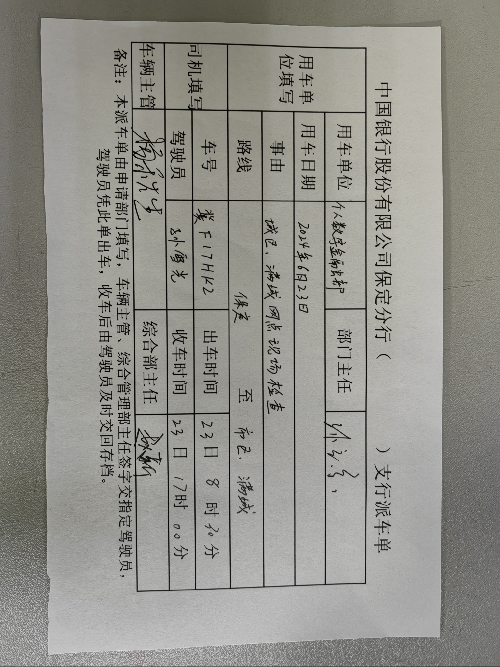 中国银行股份有限公司保定分行（ ）支行派车单
用车单位填写 用车单位 个人数字金融部 部门主任
用车日期 2024年6月23日
事由 城区、满城网点现场检查
路线 保定 至 市区、满城
司机填写 车号 冀F17HK2 出车时间 23日8时30分
驾驶员 孙雪光 收车时间 23日17时00分
车辆主管 综合部主任
备注：本派车单由申请部门填写，车辆主管、综合管理部主任签字交指定驾驶员，
驾驶员凭此单出车，收车后由驾驶员及时交回存档。